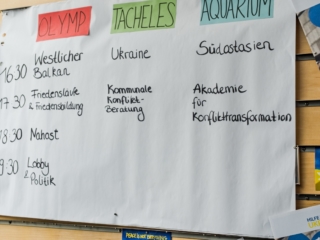 OLYMP TACHELES AQUARIUM
16 30 Westlicher Balkan
Ukraine
Südostasien
17 30 Friedensläufe & Friedensbildung
Kommunale Konflikt-Beratung
Akademie für Konflikttransformation
18 30 Nahost
19 30 Lobby & Politik